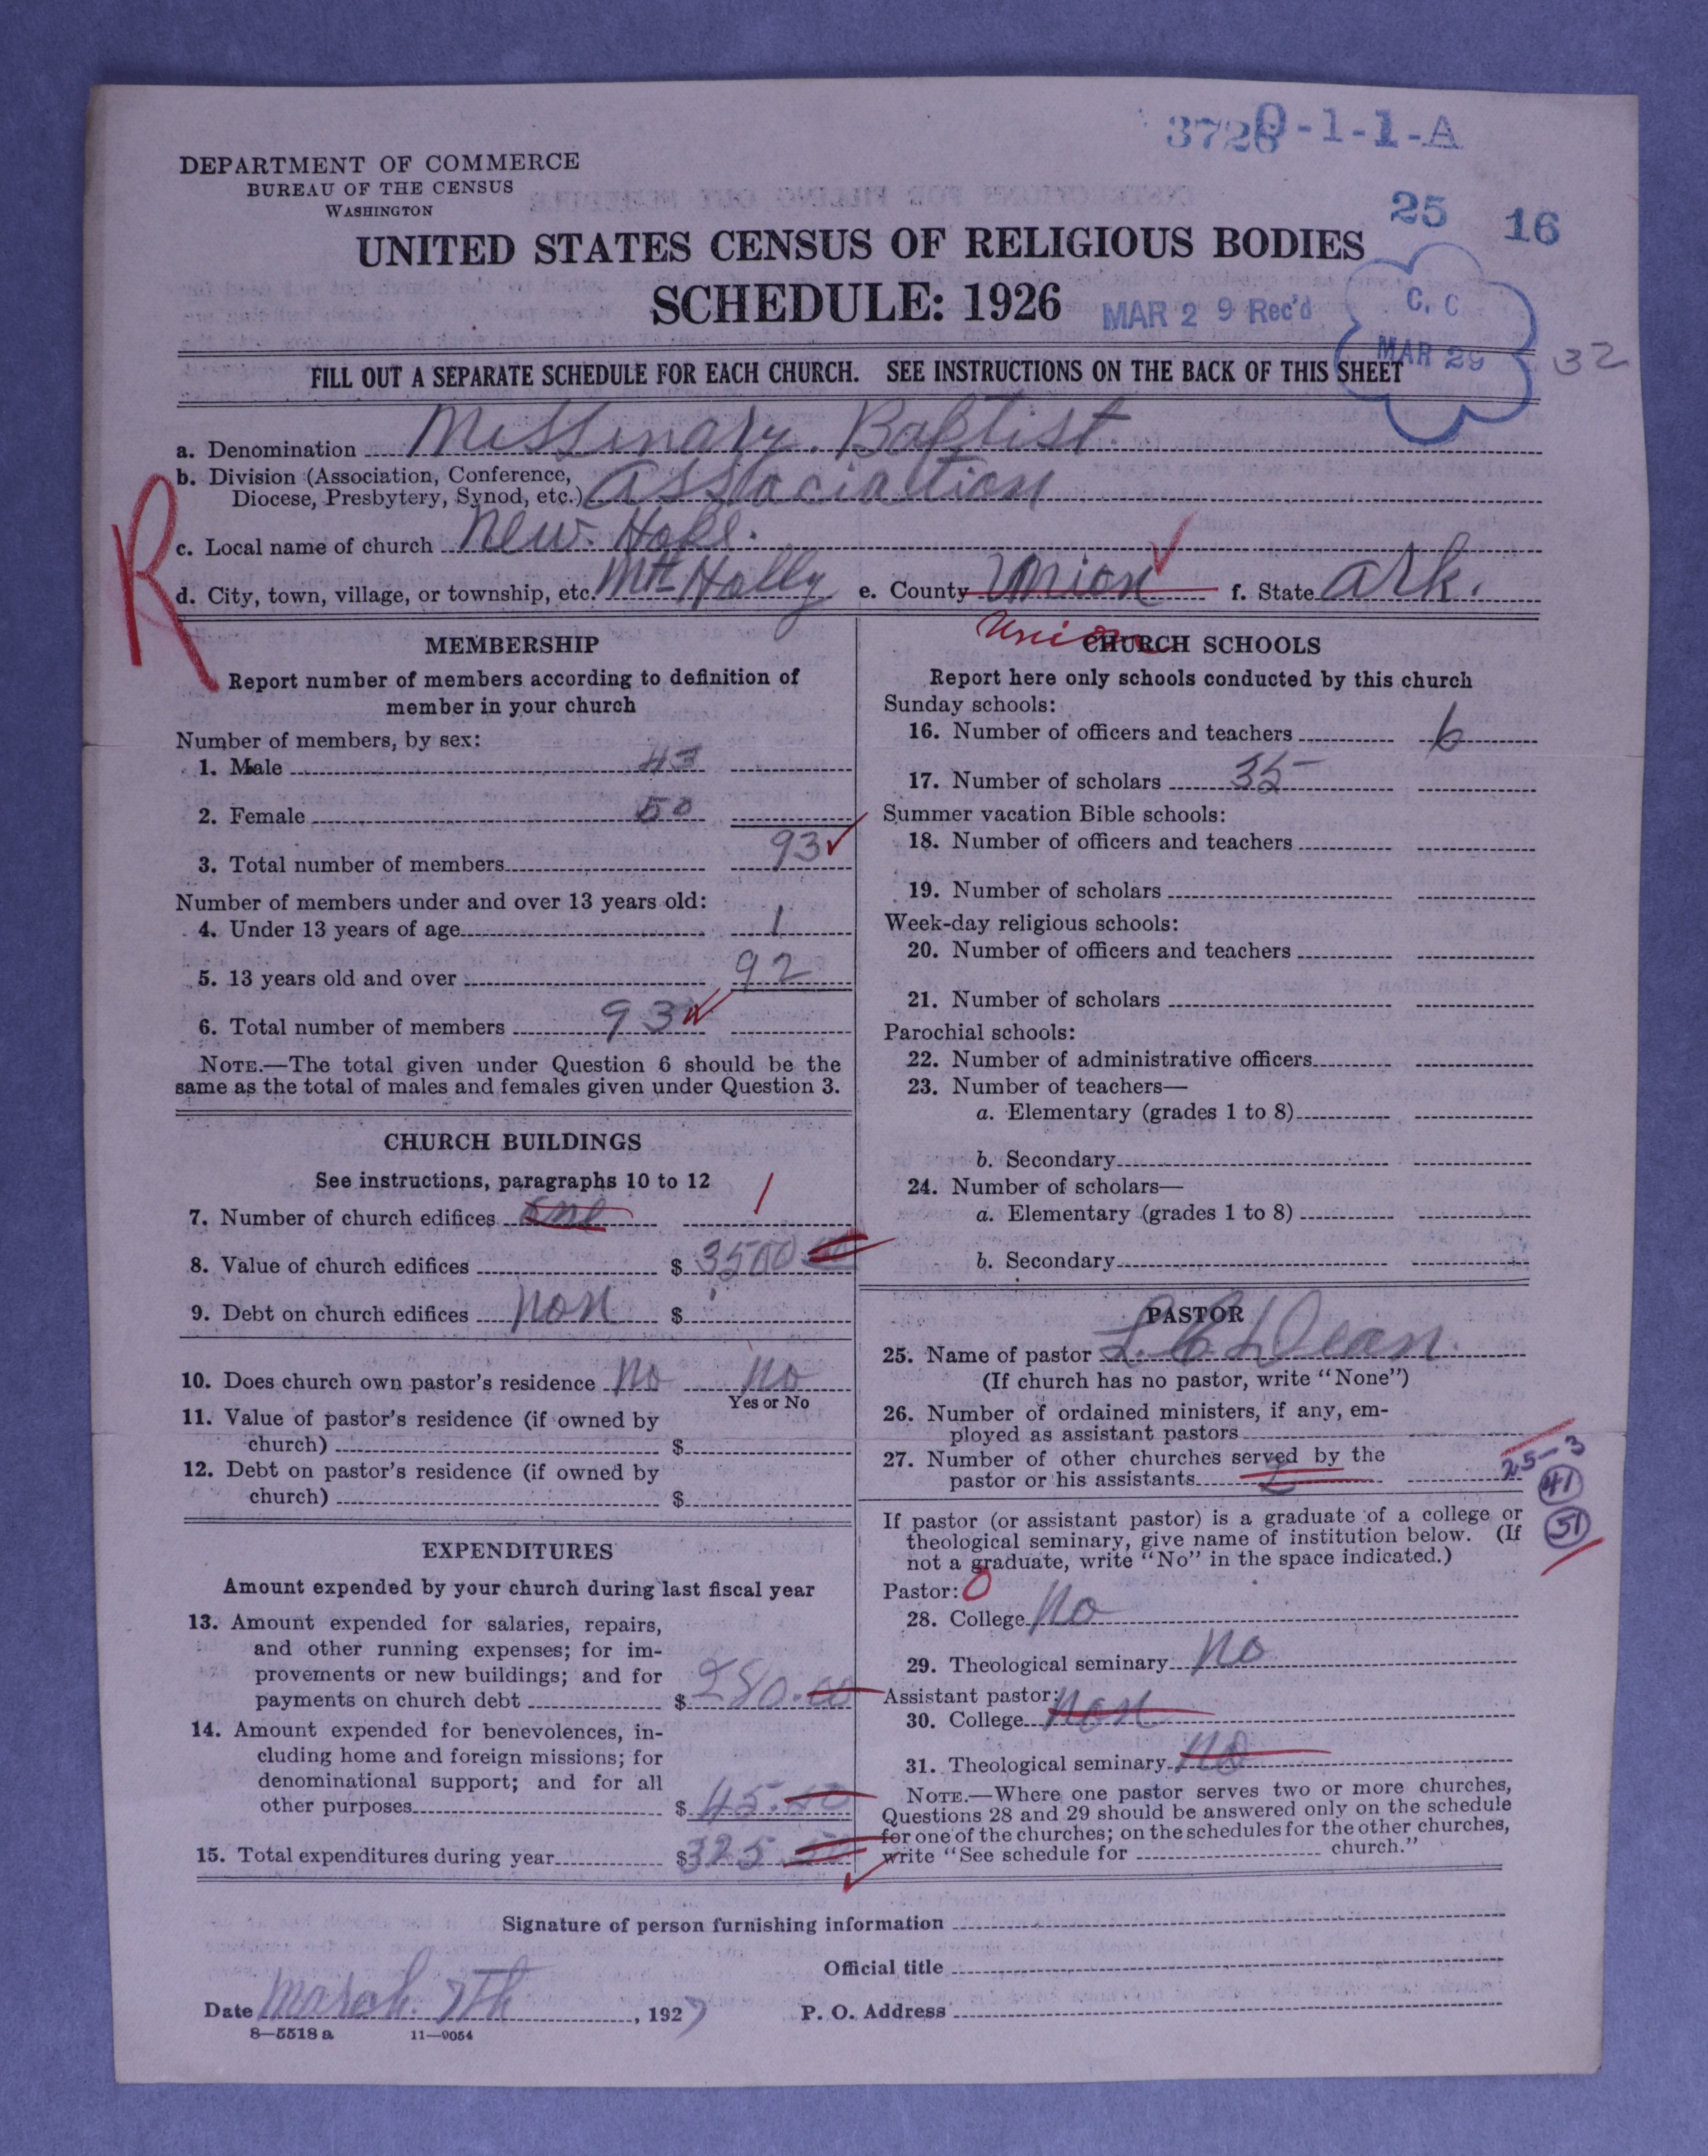 3728 0-1-1-A
DEPARTMENT OF COMMERCE
BUREAU OF THE CENSUS
WASHINGTON
25 16
UNITED STATES CENSUS OF RELIGIOUS BODIES
SCHEDULE: 1926
MAR 29 Rec'd
C. C
MAR 29
32
FILL OUT A SEPARATE SCHEDULE FOR EACH CHURCH. SEE INSTRUCTIONS ON THE BACK OF THIS SHEET
a. Denomination Missinary. Baptist.
b. Division (Association, Conference,
Diocese, Presbytery, Synod, etc.) association
R
c. Local name of church New. Hope.
d. City, town, village, or township, etc. Mt Holly e. County Union f. State Ark.
Union
MEMBERSHIP
Report number of members according to definition of
member in your church
Number of members, by sex:
1. Male 43
2. Female 50
3. Total number of members 93
Number of members under and over 13 years old:
4. Under 13 years of age 1
5. 13 years old and over 92
6. Total number of members 93
NOTE.—The total given under Question 6 should be the
same as the total of males and females given under Question 3.
CHURCH BUILDINGS
See instructions, paragraphs 10 to 12
7. Number of church edifices one 1
8. Value of church edifices $ 3500 00
9. Debt on church edifices non $
10. Does church own pastor's residence No No
Yes or No
11. Value of pastor's residence (if owned by
church) $
12. Debt on pastor's residence (if owned by
church) $
EXPENDITURES
Amount expended by your church during last fiscal year
13. Amount expended for salaries, repairs,
and other running expenses; for im-
provements or new buildings; and for
payments on church debt $ 280.00
14. Amount expended for benevolences, in-
cluding home and foreign missions; for
denominational support; and for all
other purposes $ 45.50
15. Total expenditures during year $ 325.50
CHURCH SCHOOLS
Report here only schools conducted by this church
Sunday schools:
16. Number of officers and teachers 6
17. Number of scholars 35
Summer vacation Bible schools:
18. Number of officers and teachers
19. Number of scholars
Week-day religious schools:
20. Number of officers and teachers
21. Number of scholars
Parochial schools:
22. Number of administrative officers
23. Number of teachers—
a. Elementary (grades 1 to 8)
b. Secondary
24. Number of scholars—
a. Elementary (grades 1 to 8)
b. Secondary
PASTOR
25. Name of pastor L. C. Dean.
(If church has no pastor, write "None")
26. Number of ordained ministers, if any, em-
ployed as assistant pastors
27. Number of other churches served by the
pastor or his assistants 2
25-3
41
51
If pastor (or assistant pastor) is a graduate of a college or
theological seminary, give name of institution below. (If
not a graduate, write "No" in the space indicated.)
Pastor: 0
28. College No
29. Theological seminary No
Assistant pastor:
30. College non
31. Theological seminary no
NOTE.—Where one pastor serves two or more churches,
Questions 28 and 29 should be answered only on the schedule
for one of the churches; on the schedules for the other churches,
write "See schedule for church."
Signature of person furnishing information
Official title
Date March. 7th, 1927 P. O. Address
8—5518 a 11—9054